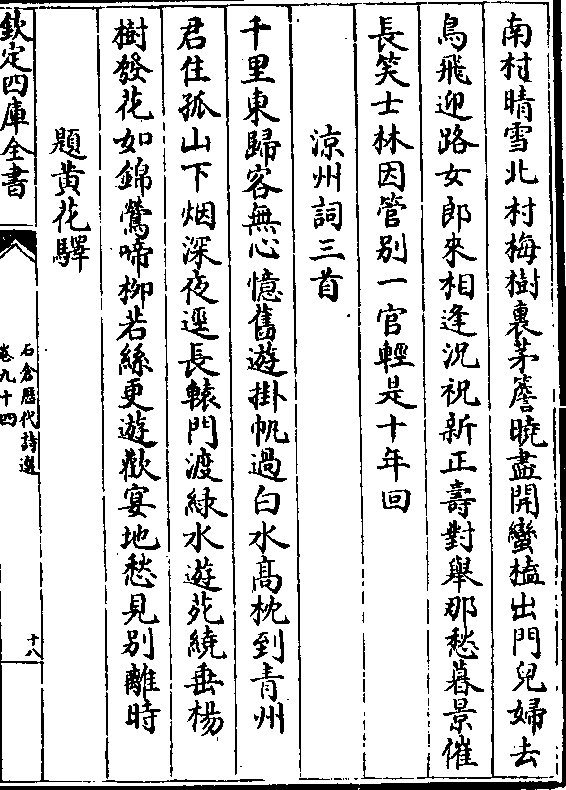 南村晴雪北村梅樹裏茅簷曉盡開蠻榼出門兒婦去
鳥飛迎路女郎來相逢况祝新正壽對舉那愁暮景催
長笑士林因管别一官輕是十年回
涼州詞三首
千里東歸客無心憶舊遊掛帆過白水髙枕到青州
君住孤山下烟深夜逕長轅門渡緑水遊苑繞垂楊
樹發花如錦鶯啼柳若絲更遊歡宴地愁見别離時
題黄花驛
欽定四庫全書
石倉歴代詩選
卷九十四
十八